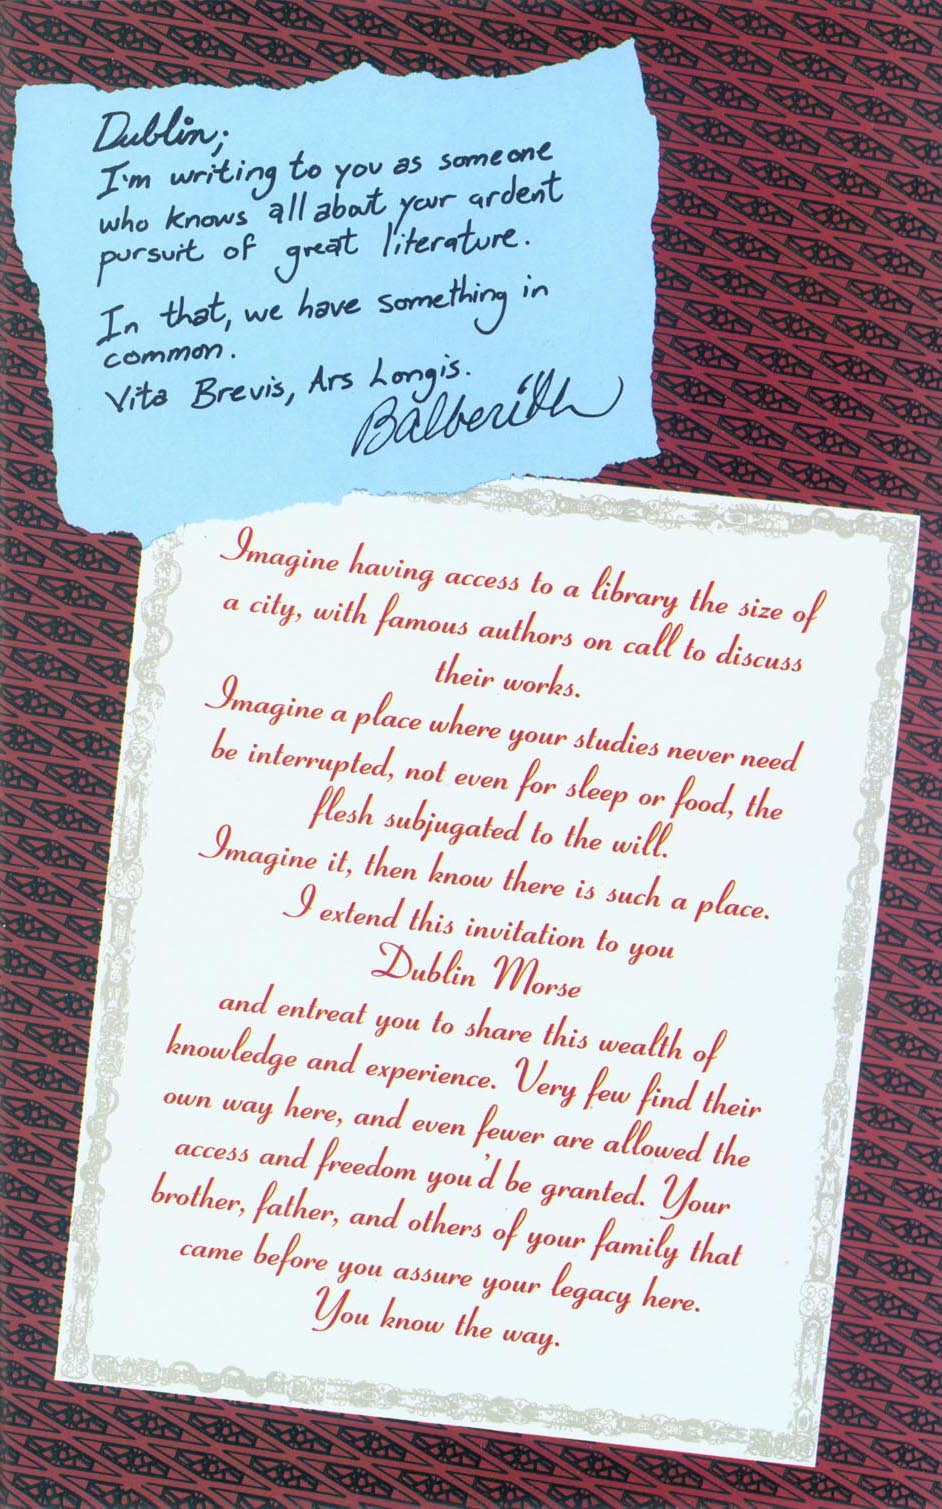 Dublin;
I'm writing to you as someone
who knows all about your ardent
pursuit of great literature.
In that, we have something in
common.
Vita Brevis, Ars Longis.
Balberith
Imagine having access to a library the size of
a city, with famous authors on call to discuss
their works.
Imagine a place where your studies never need
be interrupted, not even for sleep or food, the
flesh subjugated to the will.
Imagine it, then know there is such a place.
I extend this invitation to you
Dublin Morse
and entreat you to share this wealth of
knowledge and experience. Very few find their
own way here, and even fewer are allowed the
access and freedom you'd be granted. Your
brother, father, and others of your family that
came before you assure your legacy here.
You know the way.